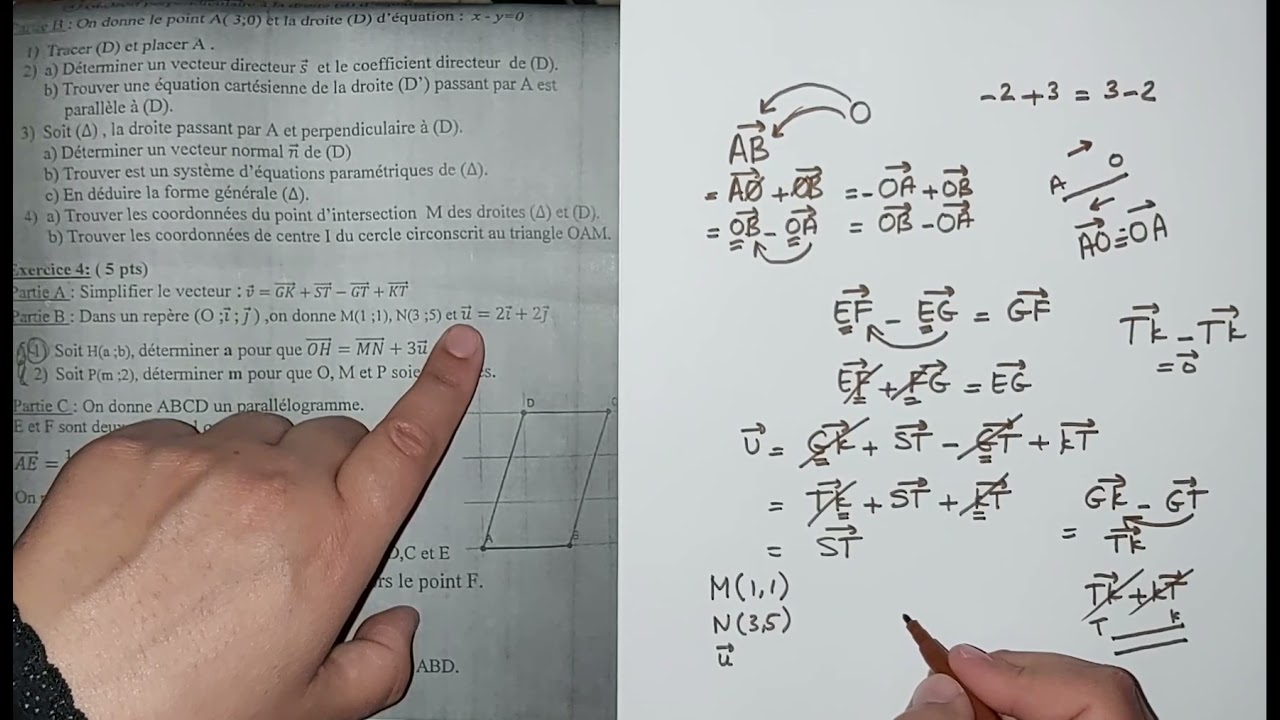 Partie B : On donne le point A( 3;0) et la droite (D) d'équation : x - y=0
1) Tracer (D) et placer A .
2) a) Déterminer un vecteur directeur s⃗ et le coefficient directeur de (D).
b) Trouver une équation cartésienne de la droite (D') passant par A est
parallèle à (D).
3) Soit (Δ) , la droite passant par A et perpendiculaire à (D).
a) Déterminer un vecteur normal n⃗ de (D)
b) Trouver est un système d'équations paramétriques de (Δ).
c) En déduire la forme générale (Δ).
4) a) Trouver les coordonnées du point d'intersection M des droites (Δ) et (D).
b) Trouver les coordonnées de centre I du cercle circonscrit au triangle OAM.
Exercice 4: ( 5 pts)
Partie A : Simplifier le vecteur : v⃗ = GK⃗ + ST⃗ − GT⃗ + KT⃗
Partie B : Dans un repère (O ;i⃗ ; j⃗ ) ,on donne M(1 ;1), N(3 ;5) et u⃗ = 2i⃗ + 2j⃗
1) Soit H(a ;b), déterminer a pour que OH⃗ = MN⃗ + 3u⃗
2) Soit P(m ;2), déterminer m pour que O, M et P
Partie C : On donne ABCD un parallélogramme.
E et F sont
AE⃗ =
On
D
C
A
B
,C et E
le point F.
ABD.
-2 + 3 = 3 - 2
O
AB⃗
= AO⃗ + OB⃗ = - OA⃗ + OB⃗
= OB⃗ - OA⃗ = OB⃗ - OA⃗
O
A
AO⃗ = OA⃗
EF⃗ - EG⃗ = GF⃗
EF⃗ + FG⃗ = EG⃗
Tk⃗ - Tk⃗
= 0⃗
U⃗ = Gk⃗ + ST⃗ - GT⃗ + kT⃗
= Tk⃗ + ST⃗ + kT⃗
= ST⃗
Gk⃗ - GT⃗
= Tk⃗
Tk⃗ + kT⃗
T k
M(1,1)
N(3,5)
u⃗